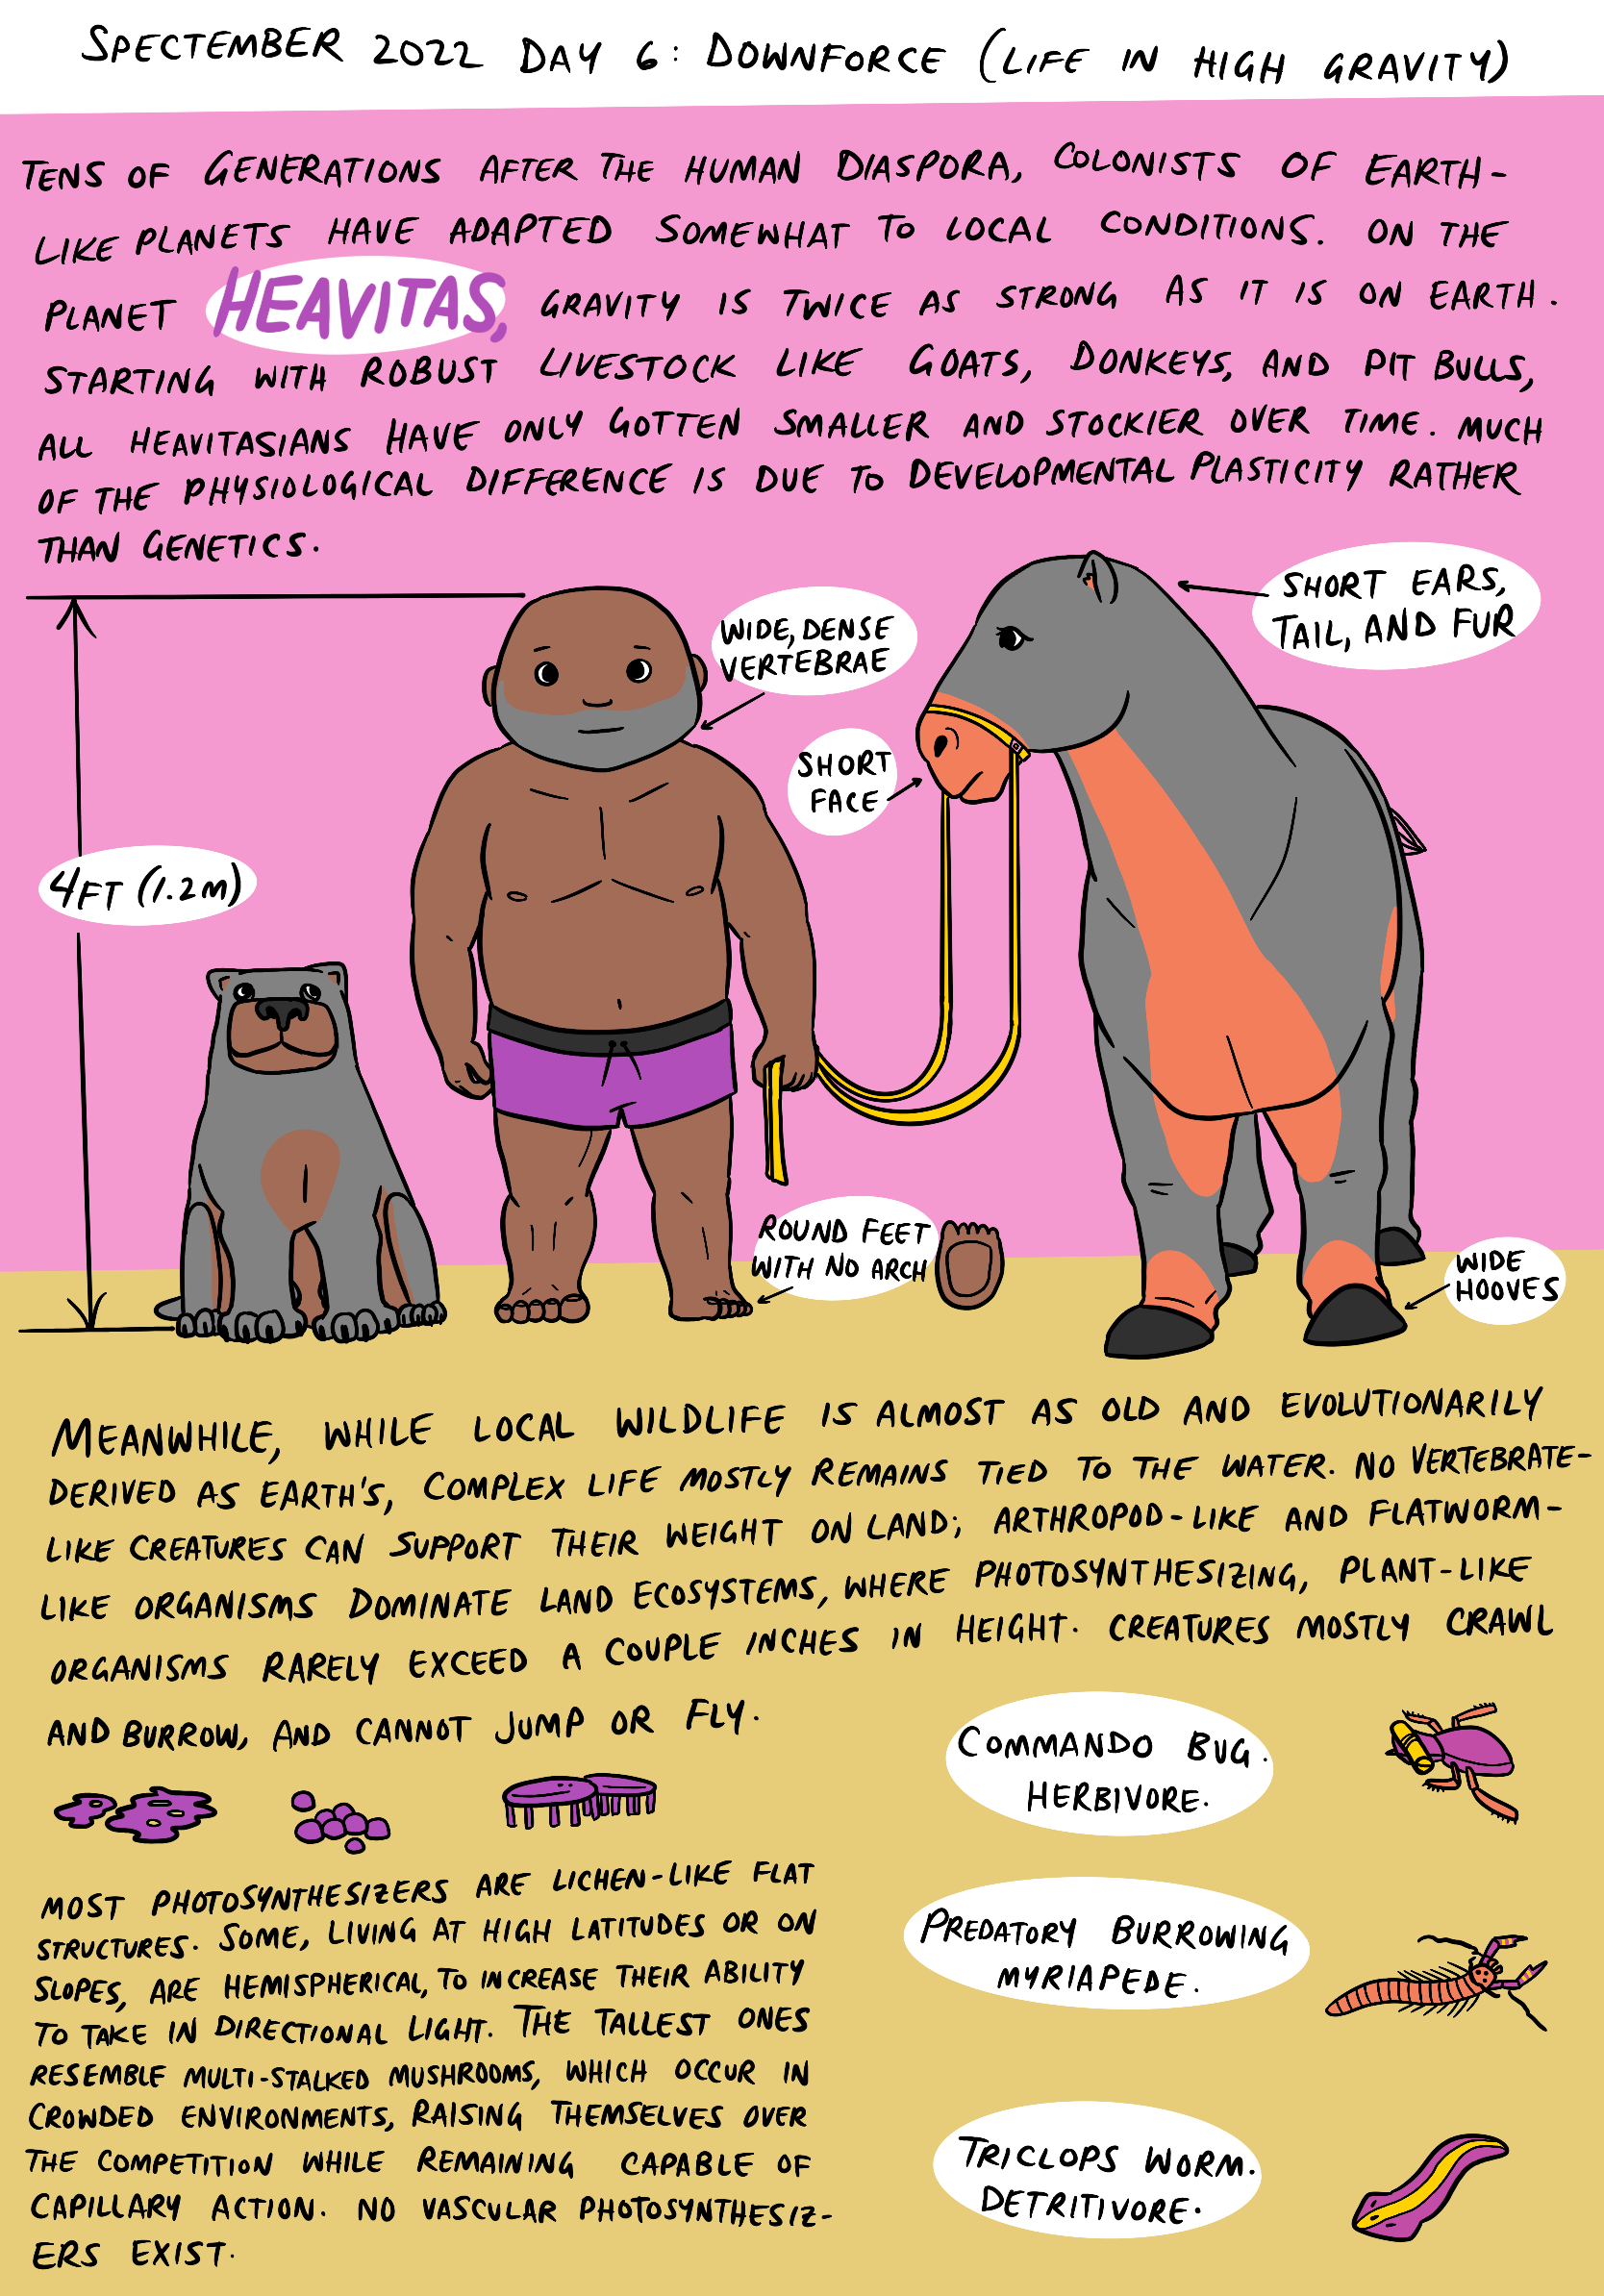 SPECTEMBER 2022 DAY 6: DOWNFORCE (LIFE IN HIGH GRAVITY)
TENS OF GENERATIONS AFTER THE HUMAN DIASPORA, COLONISTS OF EARTH-
LIKE PLANETS HAVE ADAPTED SOMEWHAT TO LOCAL CONDITIONS. ON THE
PLANET HEAVITAS, GRAVITY IS TWICE AS STRONG AS IT IS ON EARTH.
STARTING WITH ROBUST LIVESTOCK LIKE GOATS, DONKEYS, AND PIT BULLS,
ALL HEAVITASIANS HAVE ONLY GOTTEN SMALLER AND STOCKIER OVER TIME. MUCH
OF THE PHYSIOLOGICAL DIFFERENCE IS DUE TO DEVELOPMENTAL PLASTICITY RATHER
THAN GENETICS.
SHORT EARS,
TAIL, AND FUR
WIDE, DENSE
VERTEBRAE
SHORT
FACE
4FT (1.2M)
ROUND FEET
WITH NO ARCH
WIDE
HOOVES
MEANWHILE, WHILE LOCAL WILDLIFE IS ALMOST AS OLD AND EVOLUTIONARILY
DERIVED AS EARTH'S, COMPLEX LIFE MOSTLY REMAINS TIED TO THE WATER. NO VERTEBRATE-
LIKE CREATURES CAN SUPPORT THEIR WEIGHT ON LAND; ARTHROPOD-LIKE AND FLATWORM-
LIKE ORGANISMS DOMINATE LAND ECOSYSTEMS, WHERE PHOTOSYNTHESIZING, PLANT-LIKE
ORGANISMS RARELY EXCEED A COUPLE INCHES IN HEIGHT. CREATURES MOSTLY CRAWL
AND BURROW, AND CANNOT JUMP OR FLY.
MOST PHOTOSYNTHESIZERS ARE LICHEN-LIKE FLAT
STRUCTURES. SOME, LIVING AT HIGH LATITUDES OR ON
SLOPES, ARE HEMISPHERICAL, TO INCREASE THEIR ABILITY
TO TAKE IN DIRECTIONAL LIGHT. THE TALLEST ONES
RESEMBLE MULTI-STALKED MUSHROOMS, WHICH OCCUR IN
CROWDED ENVIRONMENTS, RAISING THEMSELVES OVER
THE COMPETITION WHILE REMAINING CAPABLE OF
CAPILLARY ACTION. NO VASCULAR PHOTOSYNTHESIZ-
ERS EXIST.
COMMANDO BUG.
HERBIVORE.
PREDATORY BURROWING
MYRIAPEDE.
TRICLOPS WORM.
DETRITIVORE.